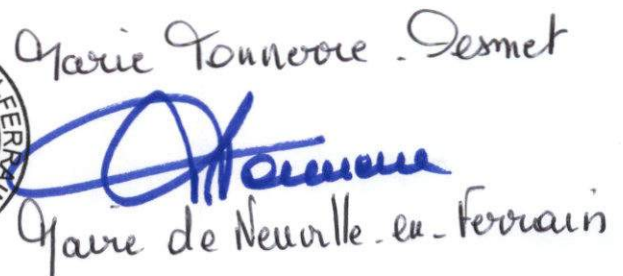 Marie Tonnerre-Desmet
FERRAIN
Maire de Neuville-en-Ferrain